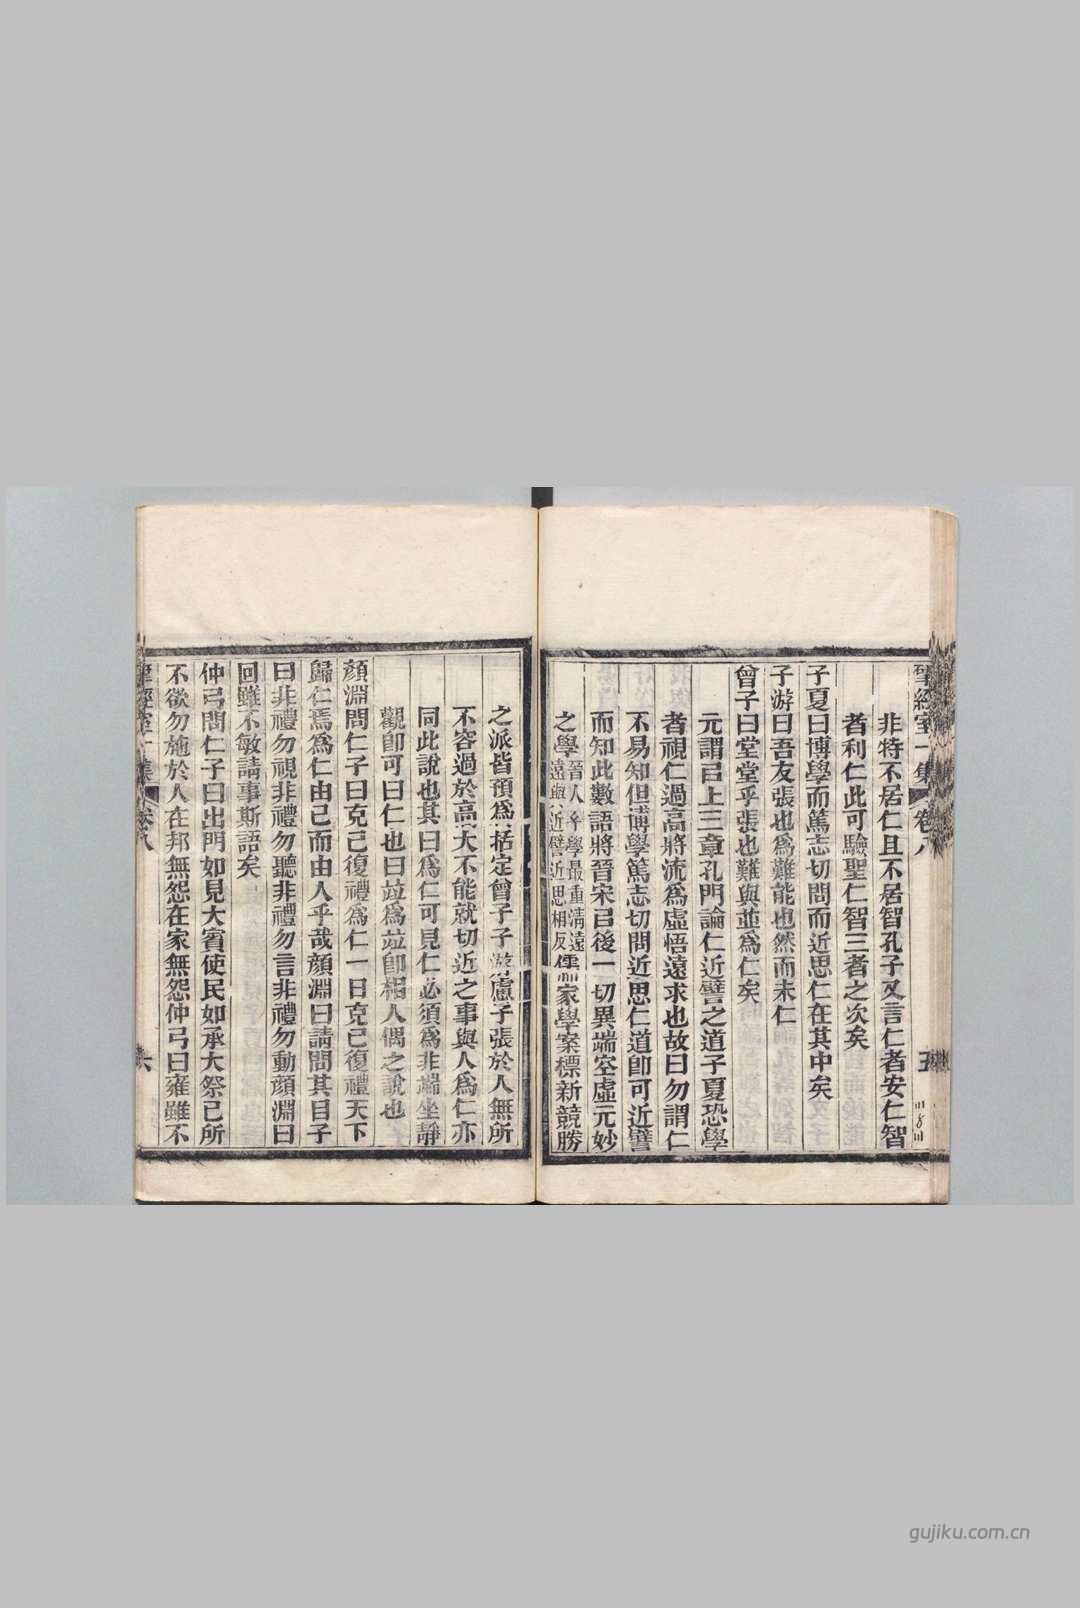 揅經室一集 卷八 五
非特不居仁且不居智孔子又言仁者安仁智
者利仁此可驗聖仁智三者之次矣
子夏曰博學而篤志切問而近思仁在其中矣
子游曰吾友張也爲難能也然而未仁
曾子曰堂堂乎張也難與並爲仁矣
元謂㠯上三章孔門論仁近譬之道子夏恐學
者視仁過高將流爲虛悟遠求也故曰勿謂仁
不易知但博學篤志切問近思仁道卽可近譬
而知此數語將晉宋㠯後一切異端空虛元妙
之學晉人字學最重淸遠遠與近譬近思相反儒家學案標新競勝
之派皆預爲括定曾子子游慮子張於人無所
不容過於高大不能就切近之事與人爲仁亦
同此說也其曰爲仁可見仁必須爲非端坐靜
觀卽可曰仁也曰竝爲竝卽相人偶之說也
顏淵問仁子曰克己復禮爲仁一日克己復禮天下
歸仁焉爲仁由己而由人乎哉顏淵曰請問其目子
曰非禮勿視非禮勿聽非禮勿言非禮勿動顏淵曰
回雖不敏請事斯語矣
仲弓問仁子曰出門如見大賓使民如承大祭己所
不欲勿施於人在邦無怨在家無怨仲弓曰雍雖不
揅經室一集 卷八 六
gujiku.com.cn